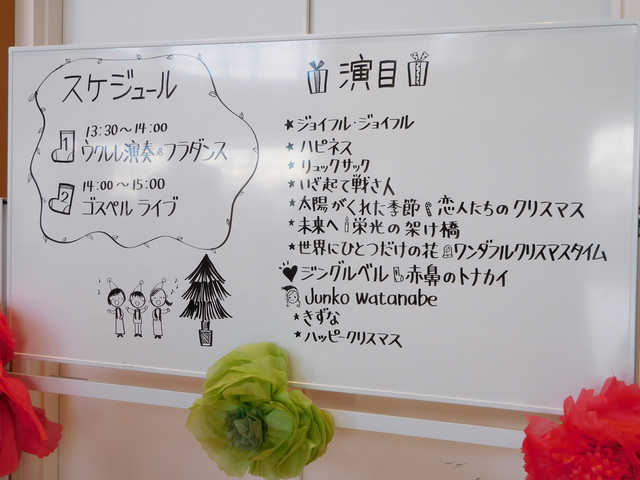 スケジュール
13:30～14:00
1 ウクレレ演奏&フラダンス
14:00～15:00
2 ゴスペル ライブ
演目
★ジョイフル・ジョイフル
★ハピネス
★リュックサック
★いざ起て戦さ人
★太陽がくれた季節 恋人たちのクリスマス
★未来へ 栄光の架け橋
★世界にひとつだけの花 ワンダフルクリスマスタイム
♥ジングルベル 赤鼻のトナカイ
Junko Watanabe
★きずな
★ハッピークリスマス